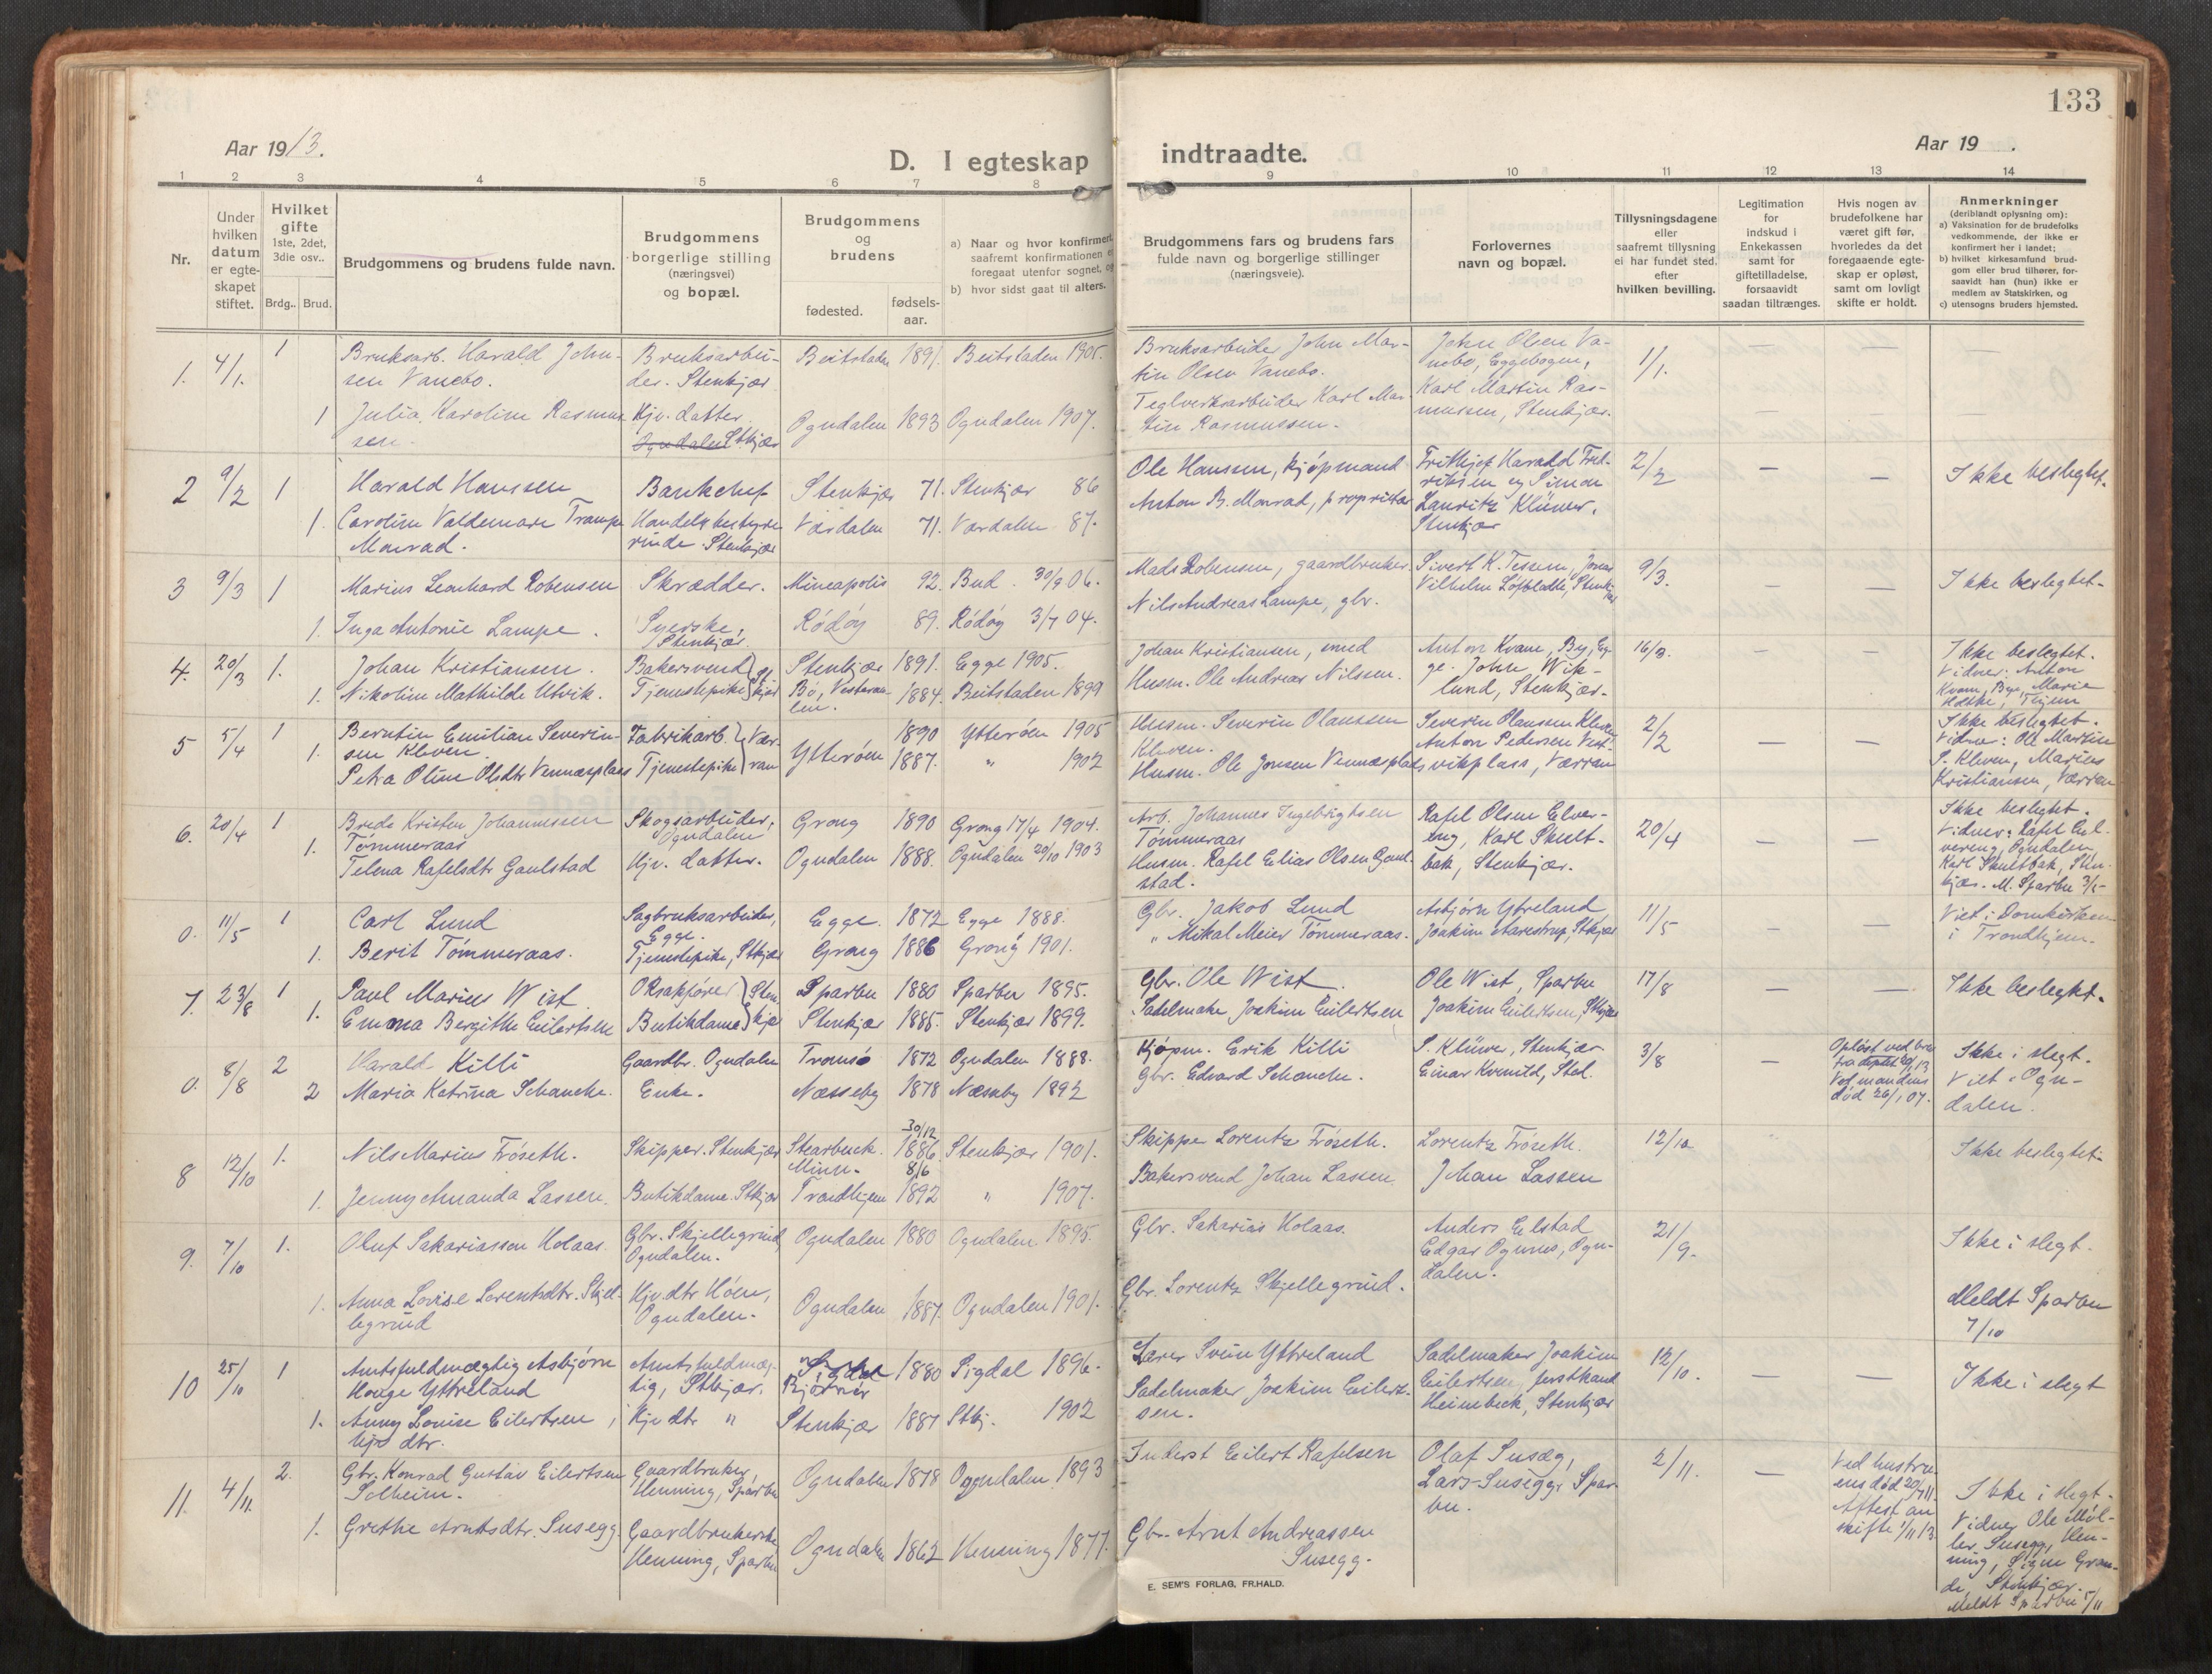 133
Aar 1913.
D. I egteskap indtraadte.
Aar 19 .
1 2 3 4 5 6 7 8 9 10 11 12 13 14
Nr.
Under hvilken datum er egteskapet stiftet.
Hvilket gifte 1ste, 2det, 3die osv..
Brdg. Brud.
Brudgommens og brudens fulde navn.
Brudgommens borgerlige stilling (næringsvei) og bopæl.
Brudgommens og brudens
fødested. fødsels-aar.
a) Naar og hvor konfirmert, saafremt konfirmationen er foregaat utenfor sognet, og
b) hvor sidst gaat til alters.
Brudgommens fars og brudens fars fulde navn og borgerlige stillinger (næringsveie).
Forlovernes navn og bopæl.
Tillysningsdagene eller saafremt tillysning ei har fundet sted, efter hvilken bevilling.
Legitimation for indskud i Enkekassen samt for giftetilladelse, forsaavidt saadan tiltrænges.
Hvis nogen av brudefolkene har været gift før, hvorledes da det foregaaende egteskap er opløst, samt om lovligt skifte er holdt.
Anmerkninger
(deriblandt oplysning om):
a) Vaksination for de brudefolks vedkommende, der ikke er konfirmert her i landet;
b) hvilket kirkesamfund brudgom eller brud tilhører, forsaavidt han (hun) ikke er medlem av Statskirken, og
c) utensogns bruders hjemsted.
1. 4/1. 1 Bruksarb. Harald John- Bruksarbei- Beitstaden 1891. Beitstaden 1905. Bruksarbeider John Mar- John Olsen Va- 1/1. — — —
sen Vanebo. der. Stenkjær tin Olsen Vanebo. nebo, Eggebogen,
1 Julia Karoline Rasmus- Kjv. datter Ogndalen 1893 Ogndalen 1907. Teglverksarbeider Karl Mar- Karl Martin Ras-
sen. Ogndalen Stkjær tin Rasmussen. mussen, Stenkjær.
2 9/2 1 Harald Hanssen Bankchef Stenkjær 71. Stenkjær 86 Ole Hanssen, kjøpmand Frithjof Harald Fred- 2/2 — — Ikke beslegtet.
1. Caroline Valdemare Trampe Handelsbestyre- Værdalen 71. Værdalen 87. Anton B. Monrad, proprietær riksen og Simon
Monrad. rinde. Stenkjær Lauritz Klüwer,
Stenkjær
3 9/3 1 Marius Leonhard Robensen Skrædder. Mineapolis 92. Bud. 30/9 06. Mads Robensen, gaardbruker. Sivert K. Tessem, Jonas 9/3. — Ikke beslegtet.
1. Inga Antonie Lampe. Syerske, Rödöy 89. Rödöy 3/7 04. Nils Andreas Lampe, gbr. Vilhelm Löfbladh, Stenkjær
Stenkjær.
4. 20/3 1. Johan Kristiansen. Bakersvend Stenkjær 1891. Egge 1905. Johan Kristiansen, smed Anton Kvam, By, Eg- 16/3. Ikke beslegtet.
1. Nikoline Mathilde Utvik. Tjenestepike Bö, Vesteraa- 1884. Beitstaden 1899 Husm. Ole Andreas Nilssen. ge. John Wik- Vidner: Anton
len. lund, Stenkjær. Kvam, Bye, Marie
5 5/4 1 Berntin Emilian Severin- Fabrikarb. Vær- Ytterøen 1890 Ytterøen 1905 Husm. Severin Olaussen Severin Olaussen Kleven 2/2 — — Ikke beslegtet.
1. sen Kleven. Kleven. Anton Pedersen Vest- Vidner: Ole Martin
Petra Oline Olsdtr Vennesplass Tjenestepike ran 1887. " 1902 Husm. Ole Jonsen Vennesplads vikplass, Værran P. Kleven, Marius
Kristiansen, Værran
6. 20/4 1 Brede Kristen Johannessen Skogsarbeider, Grong 1890 Grong 17/4 1904. Arb. Johannes Ingebrigtsen Rafel Olsen Elver- 20/4 — — Ikke beslegtet.
1. Tømmeraas Ogndalen Tømmeraas eng, Karl Skult- Vidner: Rafel El-
Telena Rafelsdtr Gaulstad Kjv. datter. Ogndalen 1888. Ogndalen 20/10 1903 Husm. Rafel Elias Olsen Gaul- bak, Stenkjær. vereng, Ogndalen,
stad. Karl Skultbak, Sten-
kjær. M. Sparbu 3/5
0. 11/5 1 Carl Lund Sagbruksarbeider, Egge. 1872 Egge 1888. Gbr. Jakob Lund Asbjørn Ytreland 11/5 — — Viet i Domkirken
Egge.
1. Berit Tömmeraas. Tjenestepike, Stkjær Grong 1886 Grong 1901. " Mikal Meier Tømmeraas. Joakim Aarestrup, Stkjær i Trondhjem.
7. 23/8 1 Paul Marius Wist Oksakfører Sten- Sparbu 1880 Sparbu 1895. Gbr. Ole Wist. Ole Wist, Sparbu 17/8 — — Ikke beslegtet.
1. Emma Bergithe Eilertsen Butikdame kjær Stenkjær 1885. Stenkjær 1899. Sadelmaker Joakim Eilertsen Joakim Eilertsen, Stkjær
0. 8/8 2 Harald Killi Gaardbr. Ogndalen Tromsø 1872 Ogndalen 1888. Kjøpm. Erik Killi S. Klüwer, Stenkjær 3/8 — Ikke i slegt.
2 Maria Katrina Schanche. Enke. Næsseby 1878 Næsseby 1892 Gbr. Edvard Schanche. Einar Kvenild, Stod. Ved mandens Viet i Ogn-
død 26/1 07. dalen.
8 12/10 1. Nils Marius Frøseth. Skipper. Stenkjær 30/12 1886 Stenkjær 1901. Skipper Lorentz Frøseth. Lorentz Frøseth. 12/10 Ikke beslegtet.
Minn. 8/6
1. Jenny Amanda Lassen. Butikdame. Stkjær Trondhjem 1892 " 1907. Bakersvend Johan Lassen Johan Lassen
9. 7/10 1. Oluf Sakariassen Holaas Gbr. Skjellegrind, Ogndalen 1880 Ogndalen 1895. Gbr. Sakarias Holaas. Anders Elstad 21/9. Ikke i slegt.
Ogndalen. Edgar Ognnes, Ogn-
1. Anna Lovise Lorentsdtr. Skjel- Kjv. dtr Höen, Ogndalen 1887. Ogndalen 1901. Gbr. Lorentz Skjellegrind. dalen. Meldt Sparbu
legrind Ogndalen. 7/10
10 25/10 1 Amtsfuldmægtig Asbjørn Amtsfuldmæg- 1880 Sigdal 1896. Lærer Svein Yttreland Sadelmaker Joakim 12/10. — — Ikke i slegt
Houge Yttreland tig, Stkjær. Bjørnör Sadelmaker Joakim Eilert- Eilertsen,
1. Anny Louise Eilertsen, Kjv dtr " Stenkjær 1887 Stkj. 1902 sen. Heimbeck, Stenkjær
kjv dtr.
11. 4/11 2. Gbr. Konrad Gustav Eilertsen Gaardbruker, Ogndalen 1878 Ogndalen 1893 Inderst Eilert Rafelsen Olaf Susæg, 2/11. — Ved hustru-
Solheim. Henning, Sparbu Lars Susegg, Spar- ens død 20/7 11. Ikke i slegt.
1. Grethe Arntsdtr. Susegg. Gaardbrukerske Ogndalen 1862 Henning 1877. Gbr. Arnt Andreassen bu. Attest an. Vidner Ole Möl-
Henning, Sparbu Susegg. skifte 1/11 13. ler Susegg, Hen-
ning, Signe Gran-
de, Stenkjær.
Meldt Sparbu 5/11
E. SEM'S FORLAG, FR.HALD.